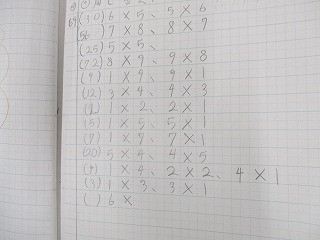 (30) 6 × 5、 5 × 6
(56 ) 7 × 8、 8 × 7
(25) 5 × 5、
(72) 8 × 9、 9 × 8
(9) 1 × 9、 9 × 1
(12) 3 × 4、 4 × 3
(2) 1 × 2、 2 × 1
(5) 1 × 5、 5 × 1
(7) 1 × 7、 7 × 1
(20) 5 × 4、 4 × 5
(4) 1 × 4、 2 × 2、 4 × 1
(3) 1 × 3、 3 × 1
( ) 6 ×